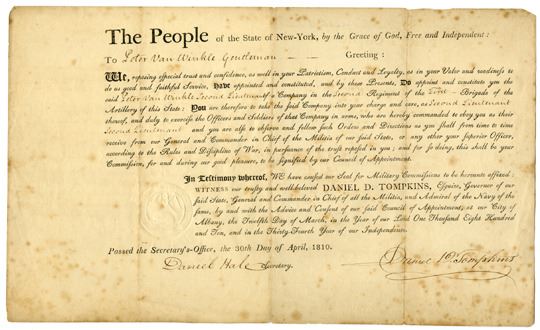 The People of the State of New-York, by the Grace of God, Free and Independent:
To Peter Van Winkle Gentleman — — Greeting:
We, reposing especial trust and confidence, as well in your Patriotism, Conduct and Loyalty, as in your Valor and readiness to
do us good and faithful Service, Have appointed and constituted, and by these Presents, Do appoint and constitute you the
said Peter Van Winkle Second Lieutenant of a Company in the Second Regiment of the First Brigade of the
Artillery of this State: You are therefore to take the said Company into your charge and care, as Second Lieutenant
thereof, and duly to exercise the Officers and Soldiers of that Company in arms, who are hereby commanded to obey you as their
Second Lieutenant and you are also to observe and follow such Orders and Directions as you shall from time to time
receive from our General and Commander in Chief of the Militia of our said State, or any other your Superior Officer,
according to the Rules and Discipline of War, in pursuance of the trust reposed in you; and for so doing, this shall be your
Commission, for and during our good pleasure, to be signified by our Council of Appointment.
In Testimony whereof, We have caused our Seal for Military Commissions to be hereunto affixed:
WITNESS our trusty and well-beloved DANIEL D. TOMPKINS, Esquire, Governor of our
said State, General and Commander in Chief of all the Militia, and Admiral of the Navy of the
same, by and with the Advice and Consent of our said Council of Appointment, at our City of
Albany, the Twelfth Day of March, in the Year of our Lord One Thousand Eight Hundred
and Ten, and in the Thirty-Fourth Year of our Independence.
Passed the Secretary's-Office, the 30th Day of April, 1810.
Daniel Hale Secretary.
Daniel D. Tompkins